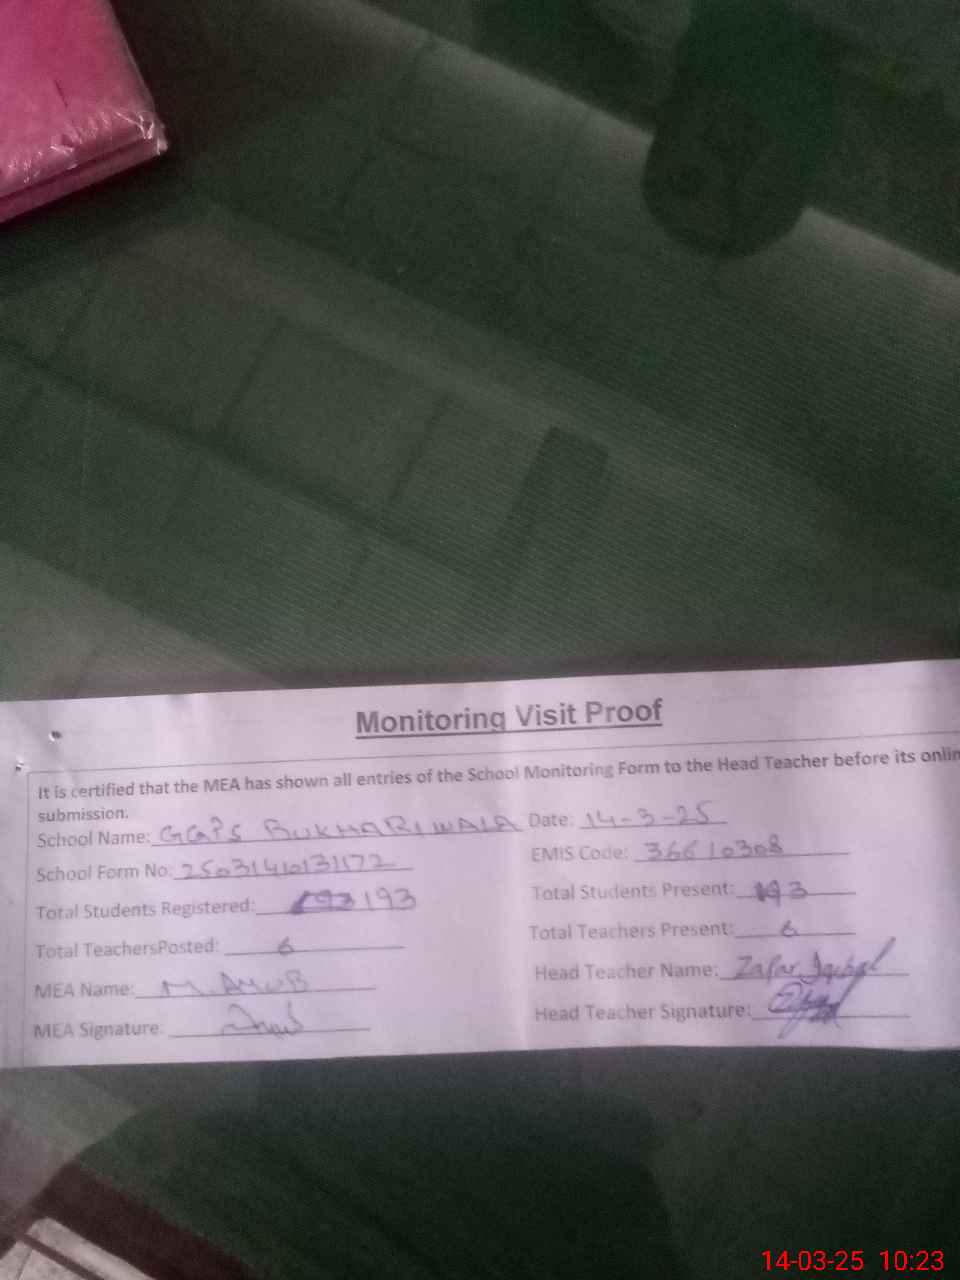 Monitoring Visit Proof
It is certified that the MEA has shown all entries of the School Monitoring Form to the Head Teacher before its onlin
submission.
School Name: GGPS BUKHARIWALA Date: 14-3-25
School Form No: 25031410131172 EMIS Code: 36610308
Total Students Registered: 193 193 Total Students Present: 193
Total TeachersPosted: 6 Total Teachers Present: 6
MEA Name: M. AYUB Head Teacher Name: Zafar Iqbal
MEA Signature: Head Teacher Signature:
14-03-25 10:23